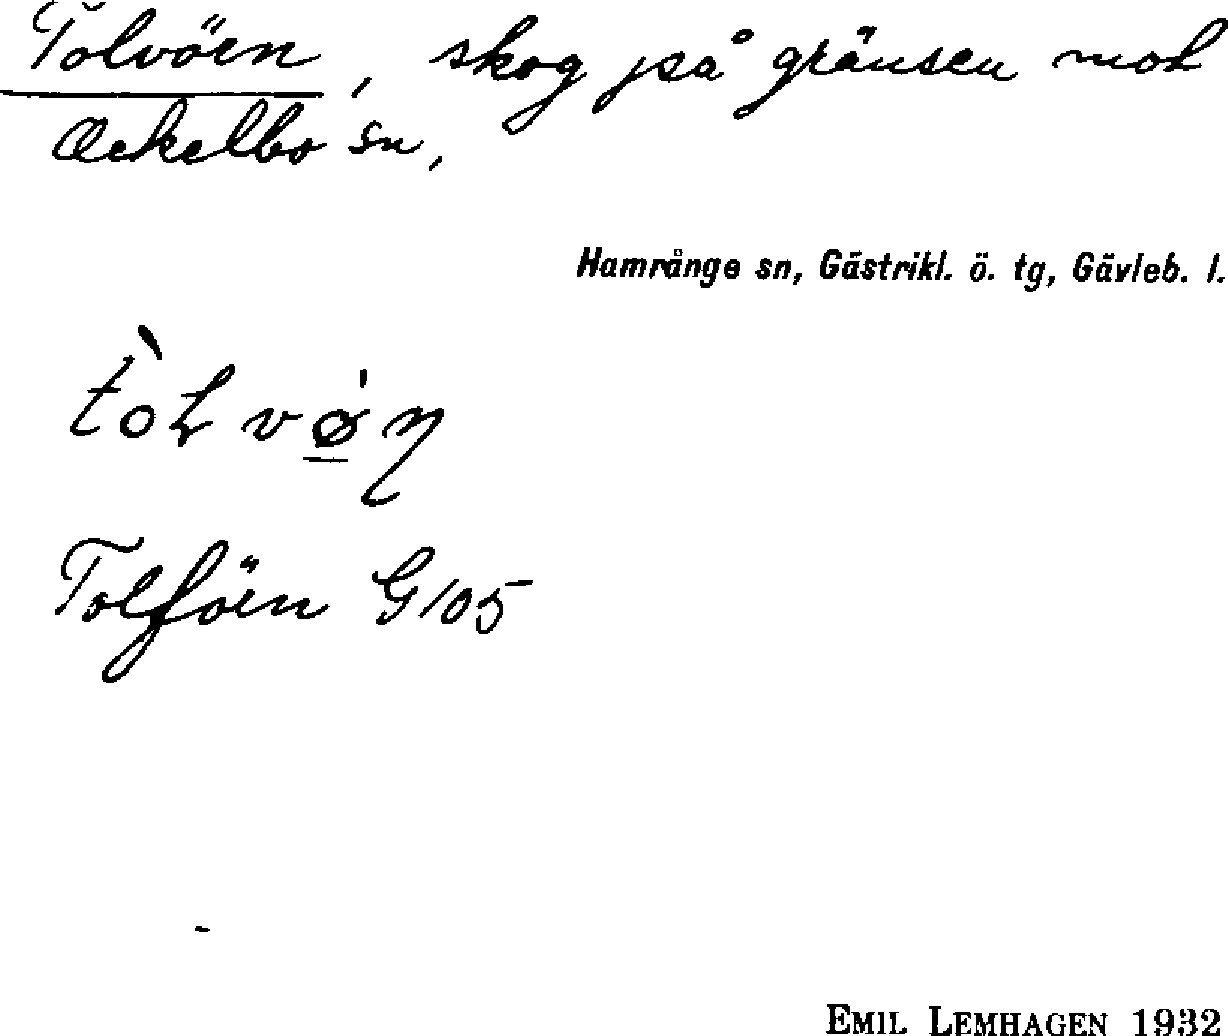 Tolvöen, skog på gränsen mot
Ockelbo sn,
Hamrånge sn, Gästrikl. ö. tg, Gävleb. l.
Tolföen G105
EMIL LEMHAGEN 1932